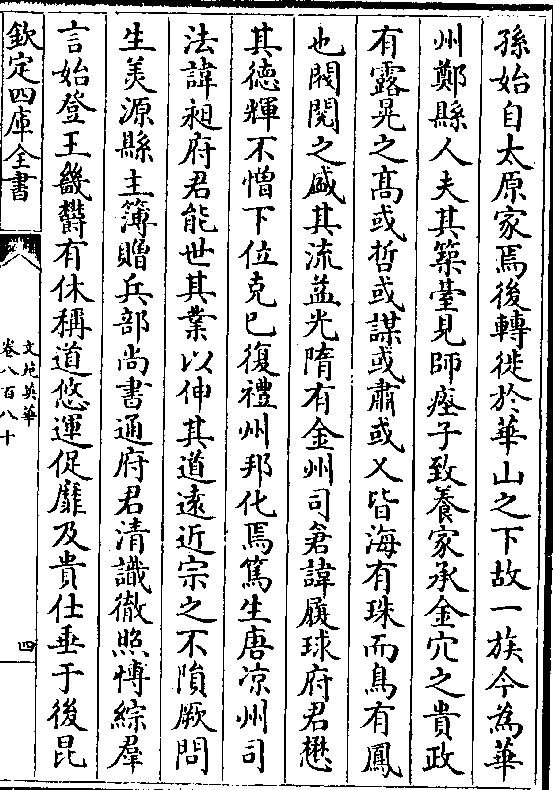 孫始自太原家焉後轉徙於華山之下故一族今為華
州鄭縣人夫其築臺見師瘞子致養家承金穴之貴政
有露晃之髙或哲或謀或肅或乂皆海有珠而鳥有鳳
也閥閱之盛其流益光隋有金州司倉諱履球府君懋
其德輝不憎下位克已復禮州邦化焉篤生唐凉州司
法諱昶府君能世其業以伸其道遠近宗之不隕厥問
生美源縣主簿贈兵部尚書通府君清識徹照愽綜羣
言始登王畿欝有休稱道悠運促靡及貴仕垂于後昆
欽定四庫全書
文苑英華
卷八百八十
四